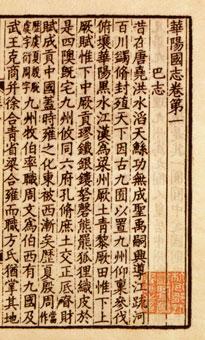 華陽國志卷第一
巴志
昔在唐堯洪水滔天鯀功無成聖禹嗣興導江疏河
百川蠲修封殖天下因古九囿以置九州仰稟參伐
俯壤華陽黑水江漢爲梁州厥土青黎厥田惟下上
厥賦惟下中厥貢璆鐵銀鏤砮磬熊羆狐狸織皮於
是四隩既宅九州攸同六府孔修庶土交正厎慎財
賦成貢中國蓋時雍之化東被西漸矣歷夏殷周
九州牧伯率職周文爲伯西有九國及
武王克商并徐合青省梁合雍而職方氏猶掌其地